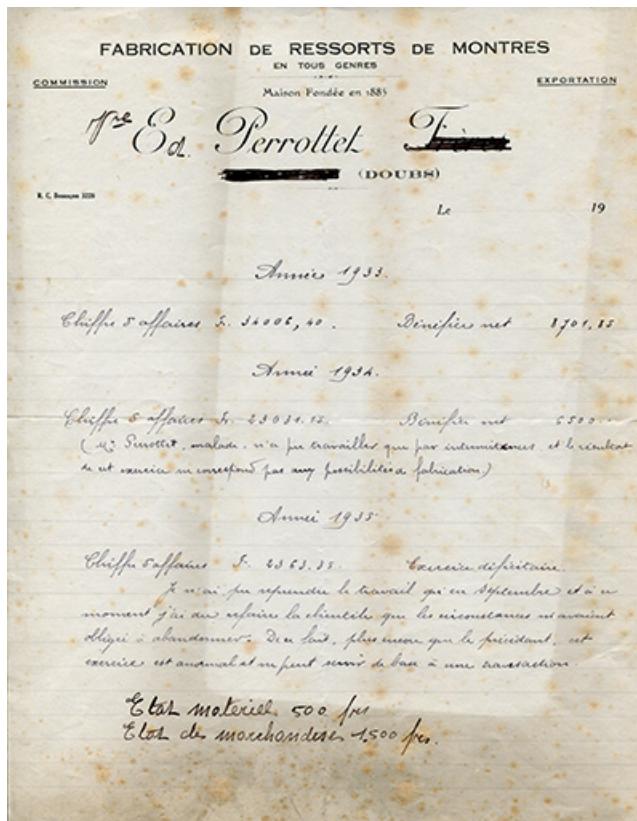 FABRICATION DE RESSORTS DE MONTRES
EN TOUS GENRES
COMMISSION
EXPORTATION
Maison Fondée en 1885
Vve Ed. Perrottet Frères
(DOUBS)
R. C. Besançon 3226
Le 19
Année 1933.
Chiffre d'affaires Fr. 34006,40. Bénéfice net 8701,85
Année 1934.
Chiffre d'affaires Fr. 23031.15. Bénéfice net 6500
(Mr Perrottet, malade, n'a pu travailler que par intermitences, et le résultat
de cet exercice ne correspond pas aux possibilités de fabrication.)
Année 1935
Chiffre d'affaires Fr. 2363.35. Exercice déficitaire.
Je n'ai pu reprendre le travail qu'en Septembre et à ce
moment j'ai du refaire la clientèle que les circonstances m'avaient
obligée à abandonner. De ce fait, plus encore que le précédant, cet
exercice est anormal et ne peut servir de base à une transaction.
Etat matériel 500 frs
Etat des marchandises 1,500 frs.